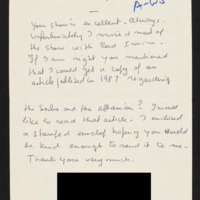 A-W
Your show is excellent - always.
Unfortunately I missed most of
the show with Reed Irvine.
If I am right you mentioned
that I could get a copy of an
article published in 1987 regarding
the Serbs and the Albanian? I would
like to read that article. I enclosed
a stamped envelop hoping you would
be kind enough to send it to me.
Thank you very much.